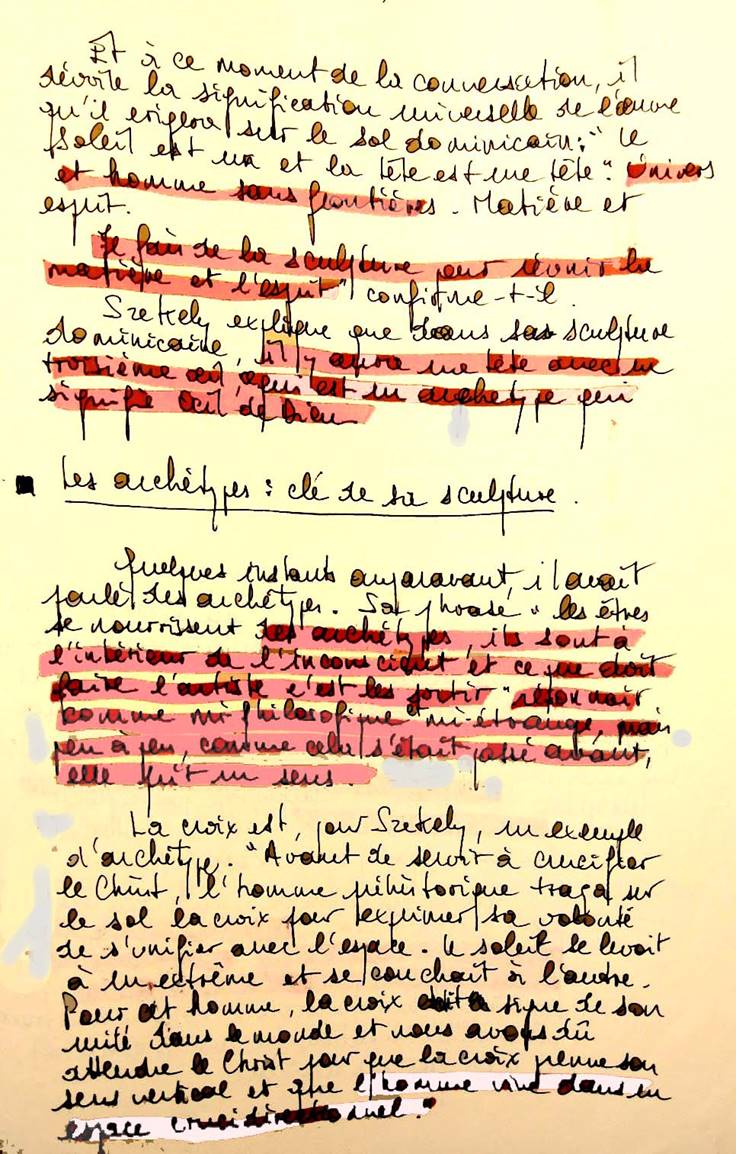 Et à ce moment de la conversation, il
dévoile la signification universelle de l'œuvre
qu'il érigera sur le sol dominicain : " le
Soleil est un et la tête est une tête ". Univers
et homme sans frontières. Matière et
esprit.
" Je fais de la sculpture pour réunir la
matière et l'esprit " confirme-t-il.
Szekely explique que dans sa sculpture
dominicaine, il y aura une tête avec un
troisième œil, qui est un archétype qui
signifie Œil de Dieu
Les archétypes : clé de sa sculpture.
Quelques instants auparavant, il avait
parlé des archétypes. Sa phrase " les êtres
se nourrissent des archétypes, ils sont à
l'intérieur de l'inconscient et ce que doit
faire l'artiste c'est les sortir " résonnait
comme mi-philosofique mi-étrange, mais
peu à peu, comme cela s'était passé avant,
elle prit un sens.
La croix est, pour Szekely, un exemple
d'archétype. " Avant de servir à crucifier
le Christ, l'homme préhistorique traça sur
le sol la croix pour exprimer sa volonté
de s'unifier avec l'espace. Le soleil se levait
à un extrême et se couchait à l'autre.
Pour cet homme, la croix signe de son
unité dans le monde et nous avons dû
attendre le Christ pour que la croix prenne son
sens vertical et que l'homme vive dans un
espace crucidirectionnel. "